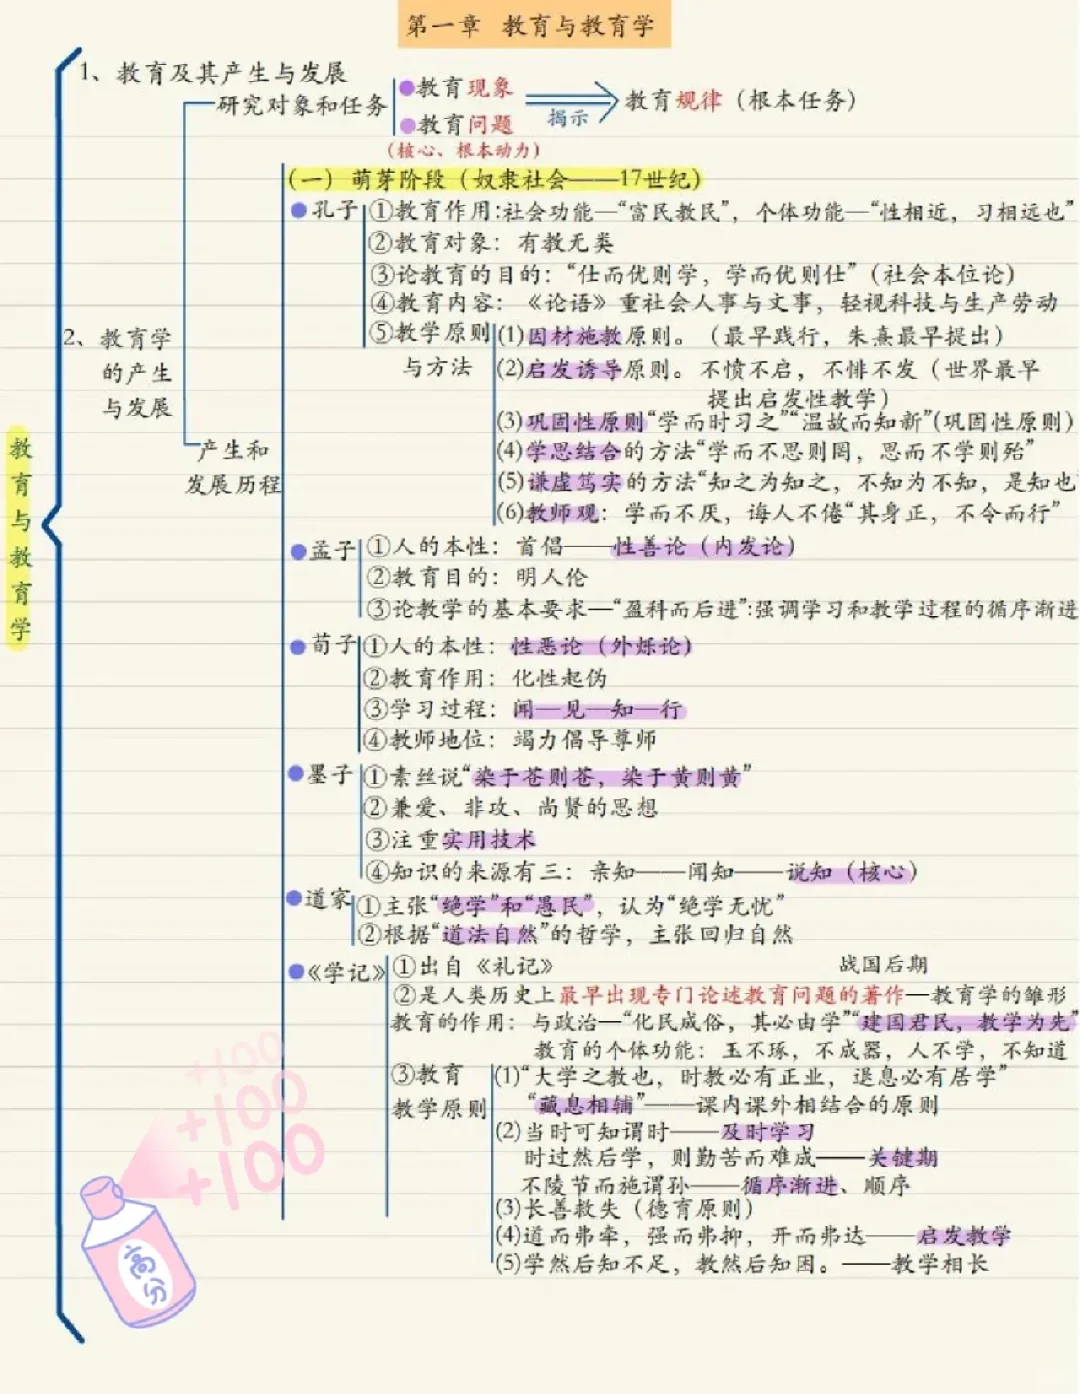 第一章 教育与教育学
1、教育及其产生与发展
研究对象和任务
教育现象
教育问题
(核心、根本动力)
揭示
教育规律（根本任务）
2、教育学
的产生
与发展
教育与教育学
产生和
发展历程
(一) 萌芽阶段（奴隶社会——17世纪）
孔子
①教育作用:社会功能—“富民教民”，个体功能—“性相近，习相远也”
②教育对象：有教无类
③论教育的目的：“仕而优则学，学而优则仕”（社会本位论）
④教育内容：《论语》重社会人事与文事，轻视科技与生产劳动
⑤教学原则
与方法
(1)因材施教原则。（最早践行，朱熹最早提出）
(2)启发诱导原则。不愤不启，不悱不发（世界最早
提出启发性教学）
(3)巩固性原则“学而时习之”“温故而知新”(巩固性原则)
(4)学思结合的方法“学而不思则罔，思而不学则殆”
(5)谦虚笃实的方法“知之为知之，不知为不知，是知也
(6)教师观：学而不厌，诲人不倦“其身正，不令而行”
孟子
①人的本性：首倡——性善论（内发论）
②教育目的：明人伦
③论教学的基本要求—“盈科而后进”:强调学习和教学过程的循序渐进
荀子
①人的本性：性恶论（外烁论）
②教育作用：化性起伪
③学习过程：闻—见—知—行
④教师地位：竭力倡导尊师
墨子
①素丝说“染于苍则苍，染于黄则黄”
②兼爱、非攻、尚贤的思想
③注重实用技术
④知识的来源有三：亲知——闻知——说知（核心）
道家
①主张“绝学”和“愚民”，认为“绝学无忧”
②根据“道法自然”的哲学，主张回归自然
《学记》
①出自《礼记》 战国后期
②是人类历史上最早出现专门论述教育问题的著作—教育学的雏形
教育的作用：与政治—“化民成俗，其必由学”“建国君民，教学为先”
教育的个体功能：玉不琢，不成器，人不学，不知道
③教育
教学原则
(1)“大学之教也，时教必有正业，退息必有居学”
“藏息相辅”——课内课外相结合的原则
(2)当时可知谓时——及时学习
时过然后学，则勤苦而难成——关键期
不陵节而施谓孙——循序渐进、顺序
(3)长善救失（德育原则）
(4)道而弗牵，强而弗抑，开而弗达——启发教学
(5)学然后知不足，教然后知困。——教学相长
+100
+100
+100
高分